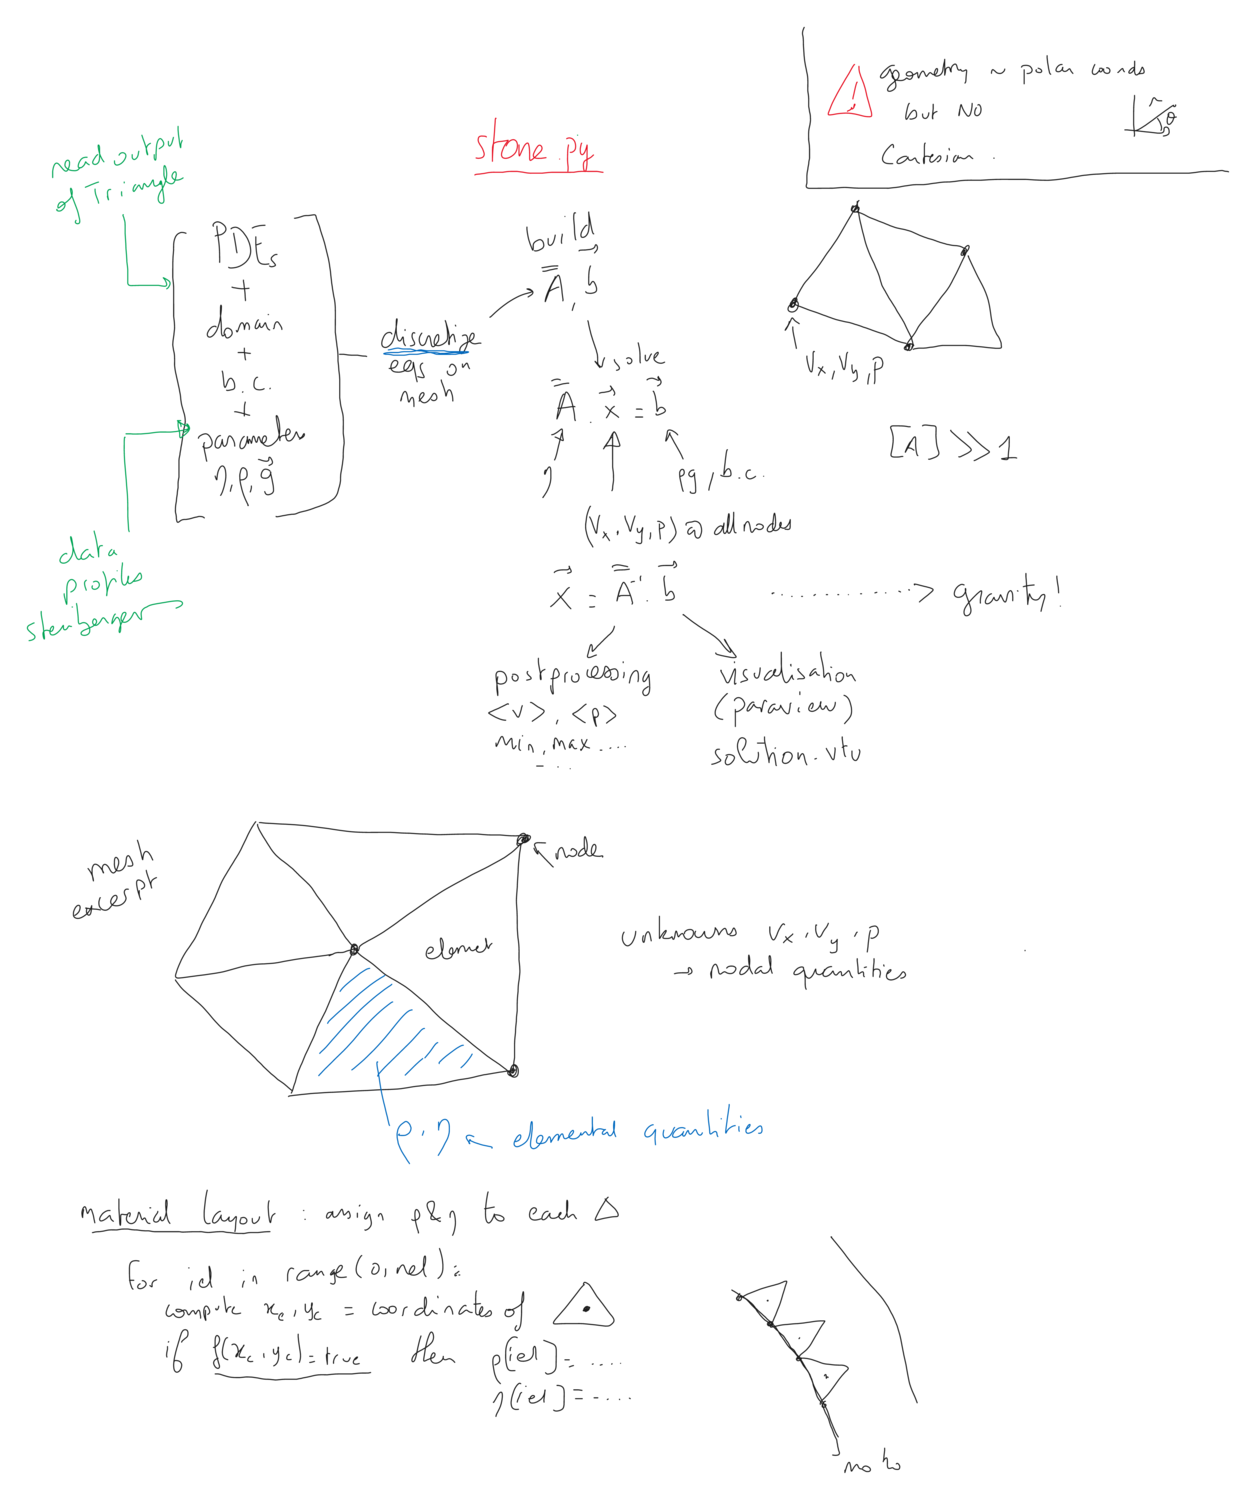 geometry ~ polar coords
but NO
Cartesian.
r
θ
stone.py
read output
of Triangle
PDEs
+
domain
+
b.c.
+
parameters
η, ρ, g⃗
data
profiles
steinberger
discretize
eqs on
mesh
build
A, b
solve
A . x = b
η
ρg, b.c.
(Vx, Vy, p) @ all nodes
x = A⁻¹ . b
............> gravity!
postprocessing
<v>, <p>
min, max ....
- ...
visualisation
(paraview)
solution.vtu
Vx, Vy, p
[A] >> 1
mesh
excerpt
node
elemet
unknowns Vx, Vy, p
→ nodal quantities
ρ, η ← elemental quantities
material layout : assign ρ & η to each Δ
for iel in range(0,nel):
compute xc, yc = coordinates of
if f(xc, yc)=true then ρ[iel]= ....
η[iel]= ....